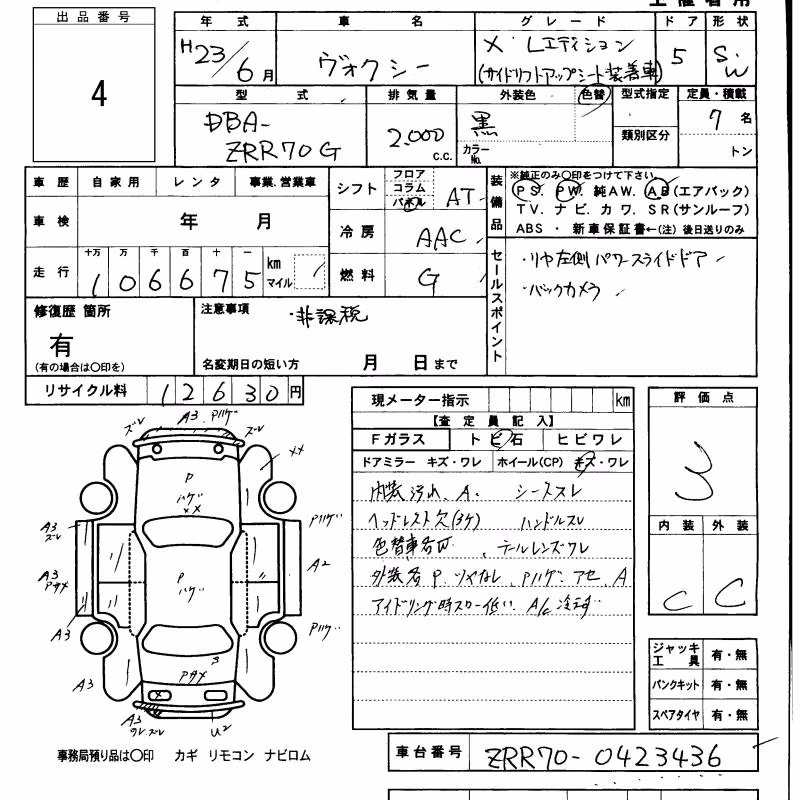 出品番号
4
年 式
H23/6月
車 名
ヴォクシー
グレード
X Lエディション
(サイドリフトアップシート装着車)
ドア
5
形状
S.W
型 式
DBA-
ZRR70G
排気量
2.000
c.c.
外装色
色替
黒
カラーNo.
型式指定
類別区分
定員・積載
7名
トン
車歴 自家用 レンタ 事業.営業車
車検 年 月
走行 十万 万 千 百 十 一
106675
km
マイル
シフト
フロア
コラム
パネル
AT
冷房
AAC
燃料
G
装備品
※純正のみ○印をつけて下さい。
PS. PW. 純AW. AB(エアバック)
TV. ナビ. カワ. SR(サンルーフ)
ABS ・ 新車保証書←(注) 後日送りのみ
セールスポイント
・リヤ左側パワースライドドア
・バックカメラ
修復歴 箇所
有
(有の場合は○印を)
注意事項
・非課税
名変期日の短い方 月 日まで
リサイクル料 12630円
現メーター指示 km
【査定員記入】
Fガラス トビ石 ヒビワレ
ドアミラー キズ・ワレ ホイール(CP) キズ・ワレ
内装汚れ、A. シートスレ
ヘッドレスト欠(3ケ) ハンドルスレ
色替車 、テールレンズワレ
外装各P ツヤなし、Pハゲ アセ、A
アイドリング時スロー低い A/C冷えず
評価点
3
内装 外装
C C
ジャッキ
工具 有・無
パンクキット 有・無
スペアタイヤ 有・無
A3 Pハゲ
ズレ ズレ
XX
P
ハゲ
XX
A3
ズレ
Pハゲ
A3
PサメA2
P
ハゲ
A3
Pハゲ
A3
Pサメ
A3
X
A3
ワレズレ
U2
事務局預り品は○印 カギ リモコン ナビロム
車台番号 ZRR70-0423436